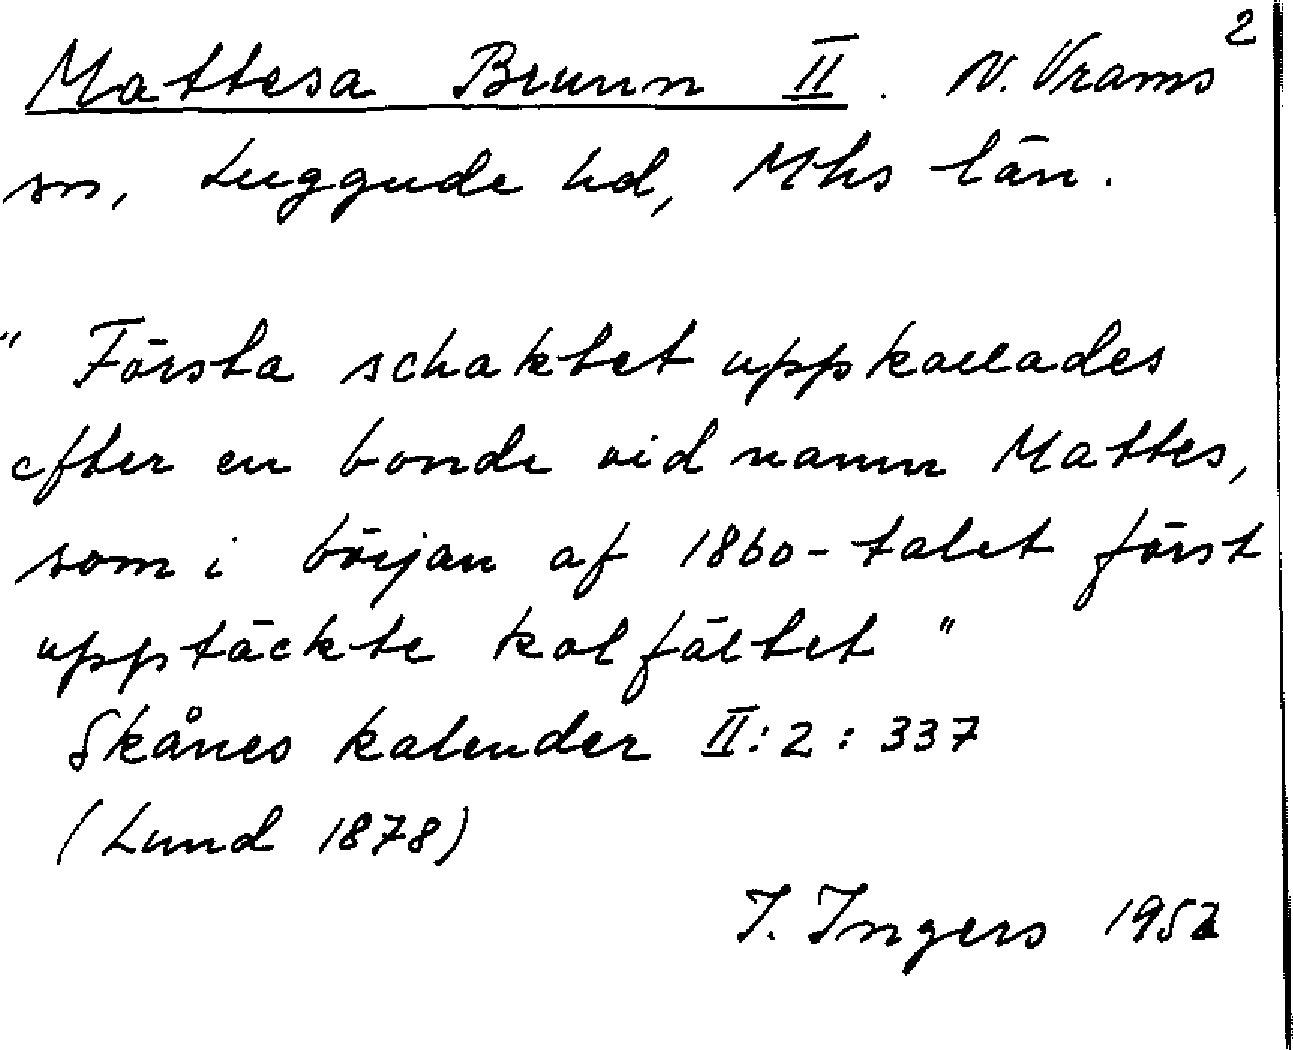 2
Mattesa Brunn II. N. Vrams
sn, Luggude hd, Mhs län.
" Första schaktet uppkallades
efter en bonde vid namn Mattes,
som i början af 1860-talet först
upptäckte kolfältet "
Skånes kalender II:2:337
(Lund 1878)
I. Ingers 1952